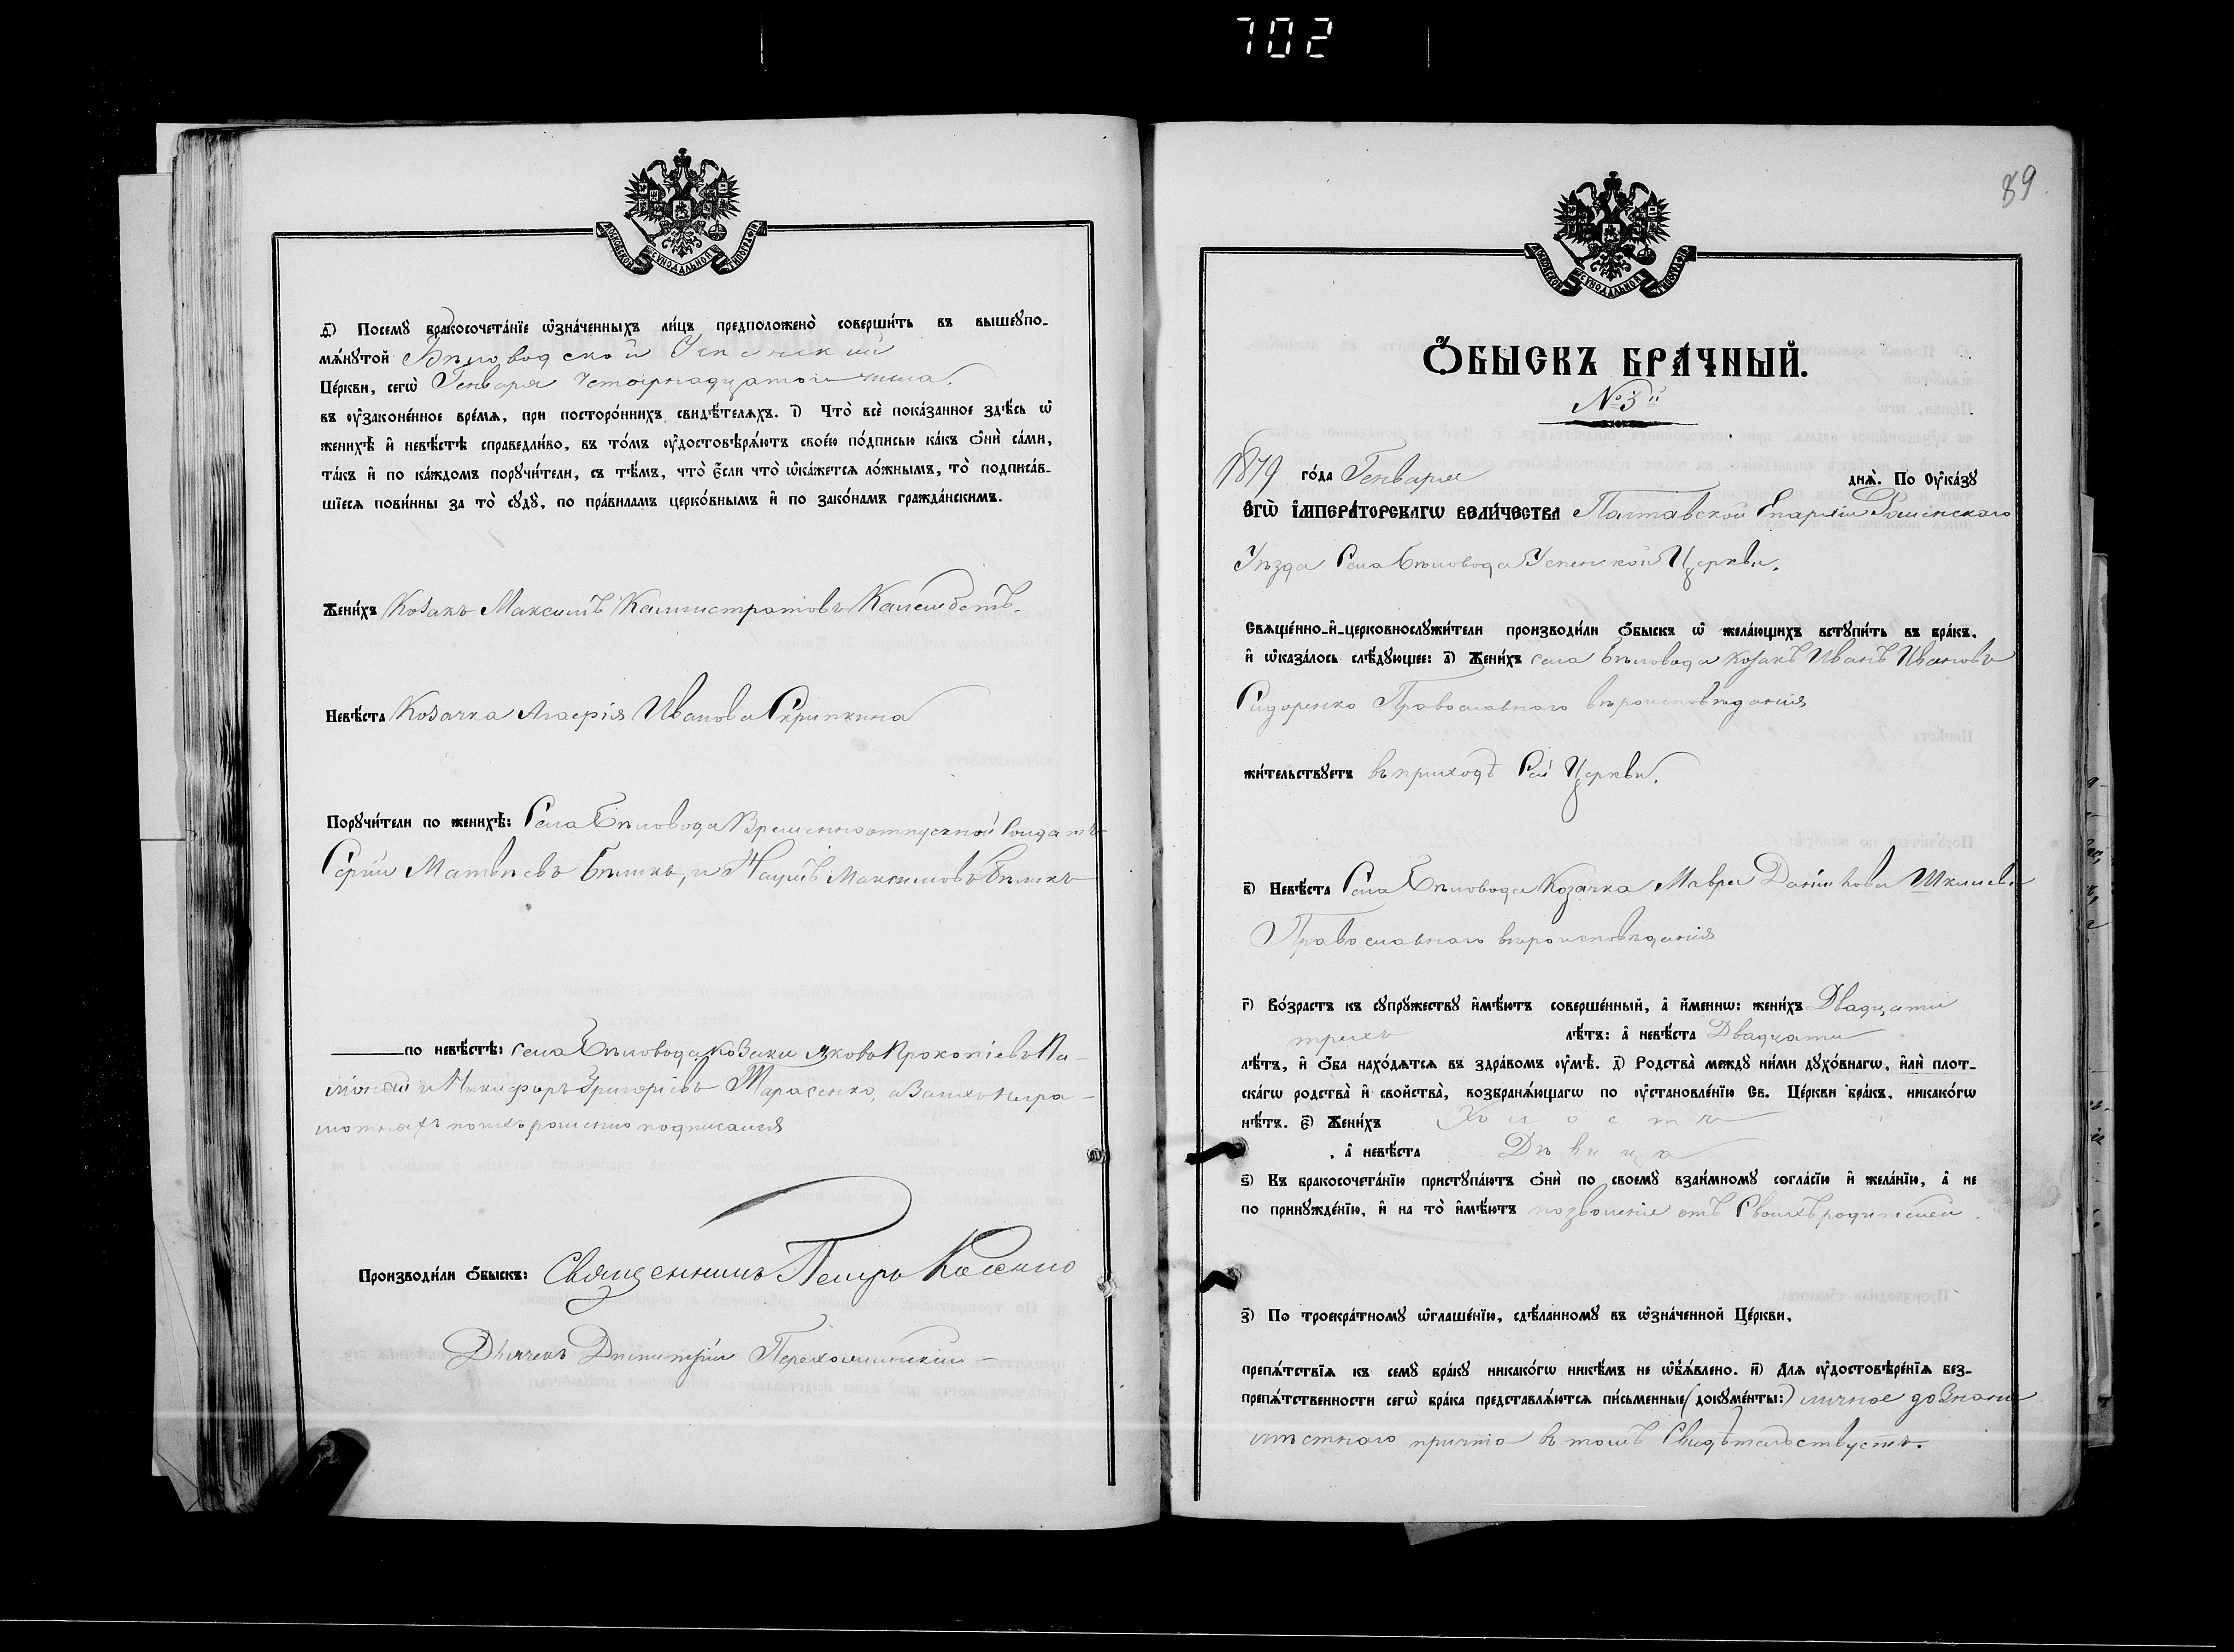 702
МОСКОВСКОЙ СѴНОДАЛЬНОЙ ТИПОГРАФІИ
д҃) Посемꙋ̀ бракосочета́нїе ѡ҆зна́ченныхъ ли́цъ предположено̀ соверши́ть въ вышеꙋпо-
мѧ́нꙋтой Бѣловодской Успенской
Це́ркви, сегѡ̀ Генваря четырнадцатого числа.
въ ᲂу҆законе́нное вре́мѧ, при посторо́ннихъ свидѣ́телѧхъ. і҃) Что̀ всѐ пока́занное здѣ́сь ѡ҆
женихѣ̀ и҆ невѣ́стѣ справедли́во, въ то́мъ ᲂу҆достовѣрѧ́ютъ свое́ю по́дписью ка́къ ѻ҆нѝ са́ми,
та́къ и҆ по ка́ждомъ порꙋчи́тели, съ тѣ́мъ, что̀ є҆́сли что̀ ѡ҆ка́жетсѧ ло́жнымъ, то̀ подписа́в-
шїесѧ пови́нны за то̀ сꙋдꙋ̀, по пра́виламъ церко́внымъ и҆ по зако́намъ гражда́нскимъ.
Жени́хъ Козакъ Максимъ Каллистратовъ
Невѣ́ста Козачка Иванова Скрипкина
Порꙋчи́тели по женихѣ̀: Села Бѣловода Временноотпускной Солдатъ
Сергій Матвѣевъ Бѣликъ, и Наумъ Максимовъ Бѣликъ
по невѣ́стѣ: села Бѣловода козаки Яковъ Прокопіевъ
и Никифоръ Григоріевъ Тарасенко, а за ихъ негра-
мотныхъ по ихъ прошенію подписался
Производи́ли ѻ҆́быскъ: Священникъ Петръ
Дьячекъ Димитрій
89
МОСКОВСКОЙ СѴНОДАЛЬНОЙ ТИПОГРАФІИ
Ѻ҆́БЫСКЪ БРА́ЧНЫЙ.
№ 3й
1879 го́да Генваря днѧ̀. По Оу҆ка́зꙋ
ЕГѠ̀ І҆МПЕРА́ТОРСКАГѠ ВЕЛИ́ЧЕСТВА Полтавской Епархіи Роменскаго
Уѣзда Села Бѣловода Успенской Церкви.
Свѧще́нно-и҆-церковнослꙋжи́тели производи́ли ѻ҆́быскъ ѡ҆ жела́ющихъ встꙋпи́ть въ бра́къ,
и҆ ѡ҆каза́лось слѣ́дꙋющее: а҃) Жени́хъ села Бѣловода козакъ Иванъ Ивановъ
Сидоренко Православнаго вѣроисповѣданія
жи́тельствꙋетъ въ приходѣ Сей Церкви.
в҃) Невѣ́ста Села Бѣловода Козачка Мавра
Православнаго вѣроисповѣданія
г҃) Во́зрастъ къ сꙋпрꙋ́жествꙋ и҆мѣ́ютъ соверше́нный, а҆ и҆́меннѡ: жени́хъ Двадцати
трехъ лѣ́тъ: а҆ невѣ́ста Двадцати
лѣ́тъ, и҆ ѻ҆́ба нахо́дѧтсѧ въ здра́вомъ ᲂу҆мѣ̀. д҃) Родства̀ междꙋ̀ ни́ми дꙋхо́внагѡ, и҆лѝ плот-
ска́гѡ родства̀ и҆ сво́йства, возбранѧ́ющагѡ по ᲂу҆становле́нїю Св. Це́ркви бра́къ, никако́гѡ
нѣ́тъ. є҃) Жени́хъ Холостъ
, а҆ невѣ́ста Дѣвица
ѕ҃) Къ бракосочета́нїю пристꙋпа́ютъ ѻ҆нѝ по своемꙋ̀ взаи́мномꙋ согла́сїю и҆ жела́нїю, а҆ не
по принꙋжде́нїю, и҆ на то̀ и҆мѣ́ютъ позволеніе отъ Своихъ родителей.
з҃) По троекра́тномꙋ ѡ҆глаше́нїю, сдѣ́ланномꙋ въ ѡ҆зна́ченной Це́ркви,
препѧ́тствїѧ къ семꙋ̀ бра́кꙋ никако́гѡ никѣ́мъ не ѡ҆б̾ѧ́влено. и҃) Длѧ ᲂу҆достовѣре́нїѧ без-
препѧ́тственности сегѡ̀ бра́ка представлѧ́ютсѧ пи́сьменные (докꙋме́нты:) личное дознаніе
мѣстнаго причта въ томъ Свидѣтельствуетъ.